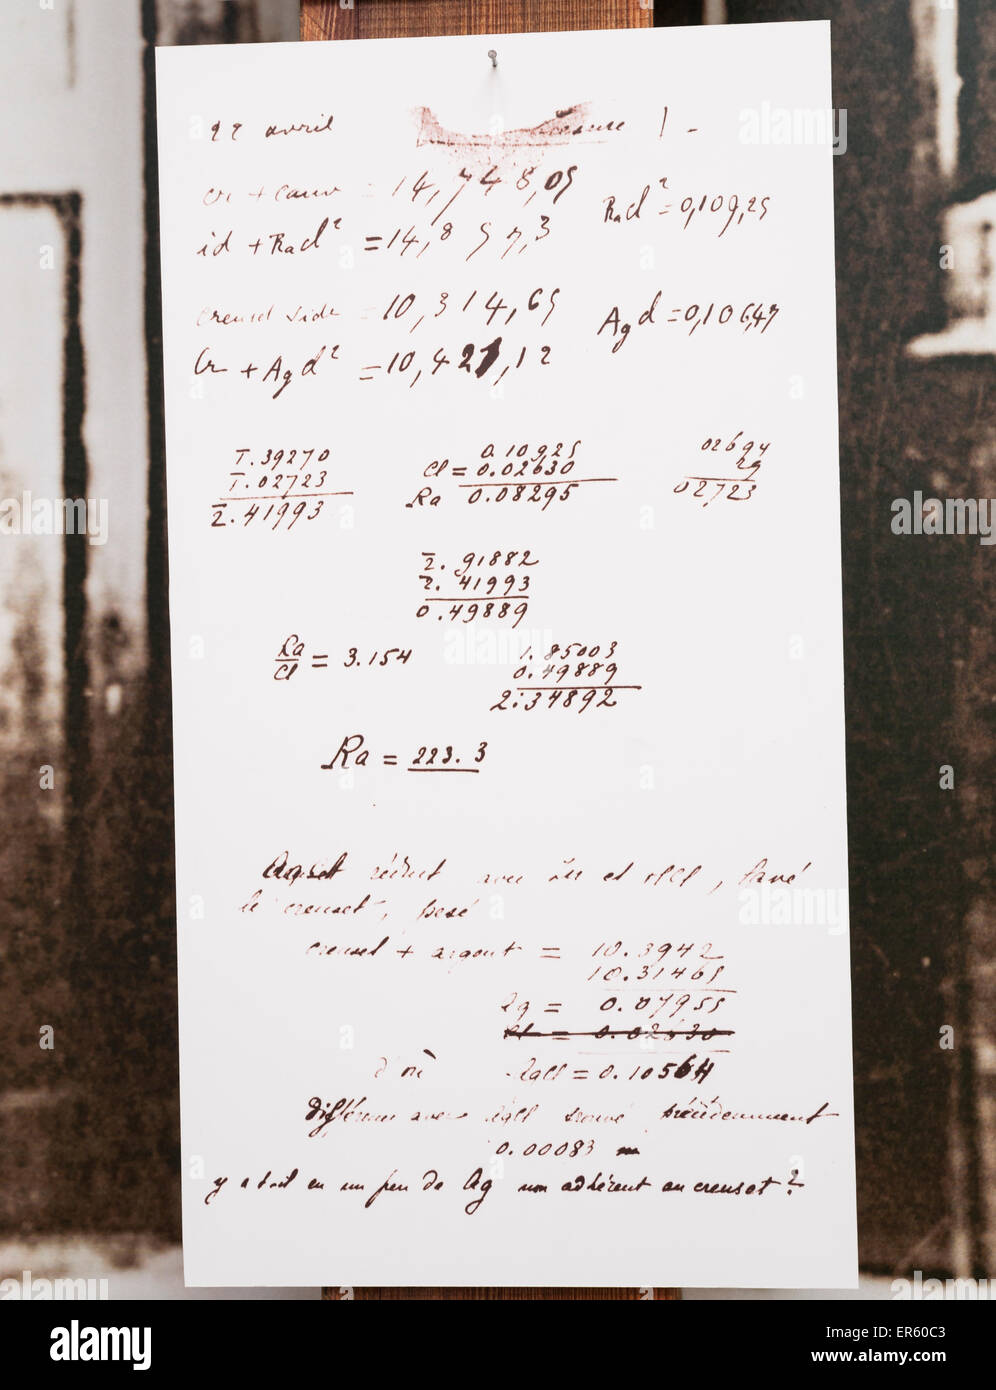 22 avril mesure 1 -
cr + couv = 14,748,05 Rad² = 0,109,25
id + Rad² = 14,857,3
creuset vide = 10,314,65 Agd = 0,106,47
Cr + Agd² = 10,421,12
T.39270 0.10925 02694
T.02723 Cl = 0.02630 29
2.41993 Ra 0.08295 02723
2.91882
2.41993
0.49889
Ra/Cl = 3.154 1.85003
0.49889
2.34892
Ra = 223.3
réduit avec et, lavé
le creuset, pesé
creuset + argent = 10.3942
10.31465
Ag = 0.07955
Cl = 0.02630
d'où AgCl = 0.10564
Différence avec AgCl trouvé précédemment
0.00083 m
y avait en un peu de Ag non adhérent au creuset?
alamy
Image ID: ER60C3
www.alamy.com